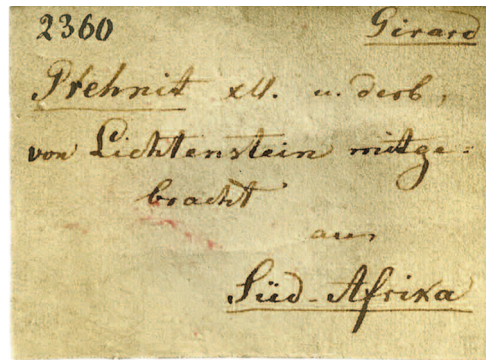 2360 Girard
Prehnit xll. u. derb,
von Lichtenstein mitge-
bracht
aus
Süd-Afrika